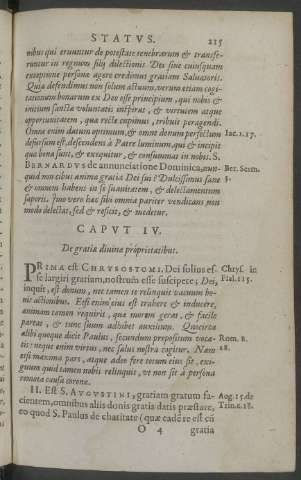 STATVS. 215
nibus qui eruuntur de potestate tenebrarum & transfe-
runtur in regnum filij dilectionis Dei sine cuiusquam
exceptione personæ agere credimus gratiam Saluatoris.
Quia defendimus non solum actuum, verum etiam cogi-
tationum bonarum ex Deo esse principium, qui nobis &
initium sanctæ voluntatis inspirat, & virtutem atque
opportunitatem, quæ rectè cupimus, tribuit peragendi.
Omne enim datum optimum, & omne donum perfectum Iac. 1. 17.
desursum est, descendens à Patre luminum, qui & incipit
quæ bona sunt, & exequitur, & consummat in nobis. S.
BERNARDVS de annunciatione Dominica, num- Ber. Serm.
quid non cibus anima gratia Dei sui? Dulcissimus sane 3.
& omnem habens in se suauitatem, & delectamentum
saporis. Imo vero hæc sibi omnia pariter vendicans non
modo delectat, sed & reficit, & medetur.
CAPVT IV.
De gratiæ diuinæ proprietatibus.
PRIMA est CHRYSOSTOMI, Dei solius es- Chrys. in
se largiri gratiam, nostrum esse suscipere; Dei, Psal. 115.
inquit, est donum, nec tamen te relinquit vacuum bo-
nis actionibus. Etsi enim eius est trahere & inducere,
animam tamen requirit, quæ morem gerat, & facile
pareat, & tunc suum adhibet auxilium. Quocirca
alibi quoque dicit Paulus, secundum propositum voca- Rom. 8.
tis: neque enim virtus, nec salus nostra cogitur. Nam 28.
etsi maxima pars, atque adeo fere totum eius sit, exi-
guum quid tamen nobis relinquit, ve non sit à persona
renata causa corona.
II. Est S. AVGVSTINI, gratiam gratum fa- Aug. 15. de
cientem, omnibus aliis donis gratis datis præstare, Trin. c. 18.
eo quod S. Paulus de charitate (quæ eadē re est cū
O 4 gratia